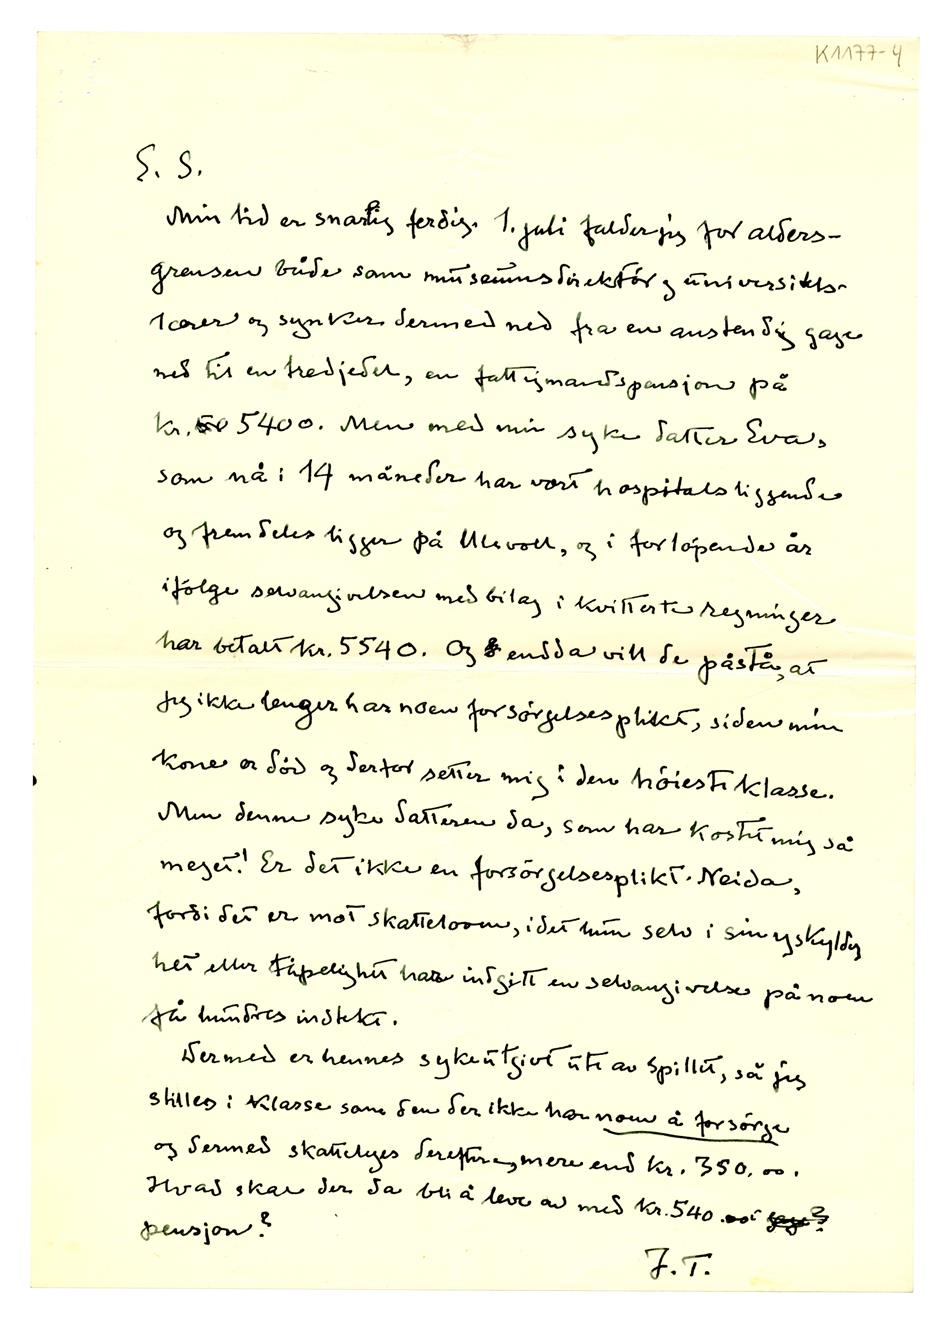 K1177-4
E. S.
Min tid er snarlig ferdig. 1. juli falder jeg for alders-
grensen både som museumsdirektör og universitets-
lærer og synker dermed ned fra en anstendig gage
ned til en tredjedel, en fattigmandspensjon på
kr. 5400. Men med min syke datter Eva,
som nå i 14 måneder har vært hospitalsliggende
og fremdeles ligger på Ullevoll, og i forlöpende år
ifölge selvangivelsen med bilag i kvitterte regninger
har betalt kr. 5540. Og endda vill de påstå, at
jeg ikke lenger har noen forsörgelsesplikt, siden min
kone er död og derfor setter mig i den höieste klasse.
Men denne syke datteren da, som har kostet mig så
meget! Er det ikke en forsörgelsesplikt. Neida,
fordi det er mot skatteloven, idet hun selv i sin uskyldig
het eller tåpelighet har indgitt en selvangivelse på noen
få hundres indtekt.
Dermed er hennes sykeutgivt ute av spillet, så jeg
stilles i klasse som den der ikke har noen å forsörge
og dermed skattelegges derefter, mere end kr. 350.00.
Hvad skal der da bli å leve av med kr. 540 i
pensjon?
J. T.